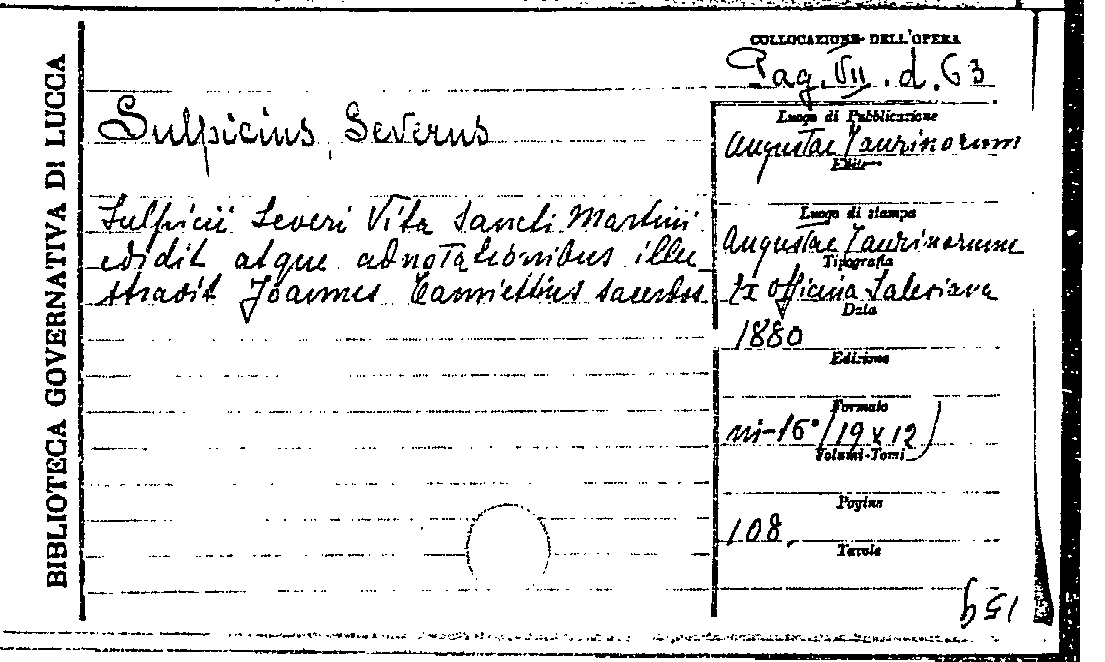 BIBLIOTECA GOVERNATIVA DI LUCCA
COLLOCAZIONE DELL'OPERA
Pag. VII. d. 63
Sulpicius, Severus
Sulpicii Severi Vita Sancti Martini
edidit atque adnotationibus illu_
stravit Joannes Tamiettius sacerdos
Luogo di Pubblicazione
Augustae Taurinorum
Editore
Luogo di stampa
Augustae Taurinorum
Tipografia
Ex officina Salesiana
Data
1880
Edizione
Formato
in-16° (19 x 12)
Volumi-Tomi
Pagine
108.
Tavole